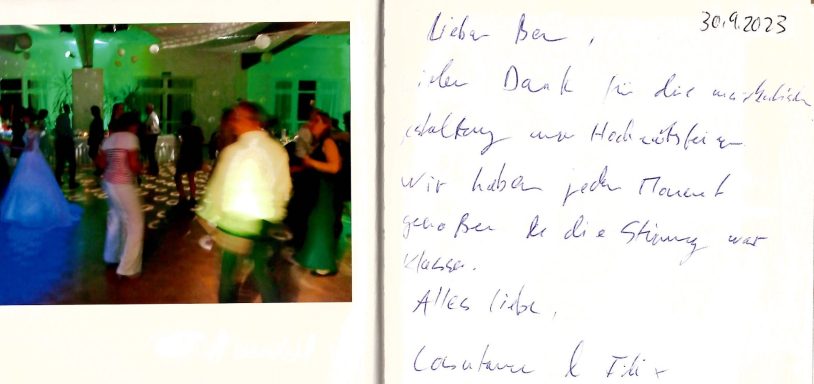 30.9.2023
Lieber Ben,
ielen Dank für die musikalische
estaltung unserer Hochzeitsfeier
Wir haben jeden Moment
genoßen & die Stimmung war
klasse.
Alles liebe,
& Felix